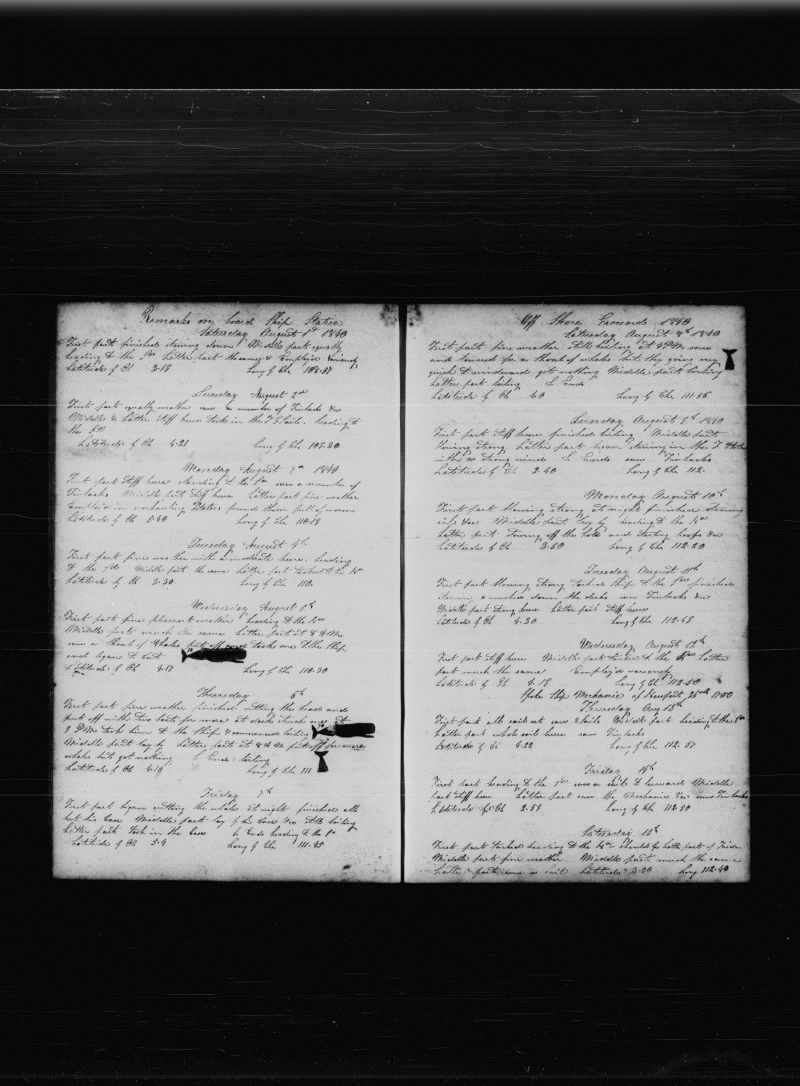 Remarks on board Ship States
Saturday August 1st 1840
First part finished stowing down Middle part squally
heading to the Latter part the same Employed variously
Latitude by Ob 3.19 Long by Chr
Sunday August 2nd
First part squally weather saw a number of Finbacks &c
Middle & Latter stiff breeze took in the T G Sails heading to
the
Latitude by Ob 4.21 Long by Chr
Monday August 3rd 1840
First part stiff breeze standing to the saw a number of
Finbacks Middle part stiff breeze Latter part fine weather
employed in overhauling Potatoes found them full of worms
Latitude by Ob Long by Chr 110.19
Tuesday August 4th
First part fine weather with a moderate breeze heading
to the Middle part the same Latter part tacked to
Latitude by Ob 3.30 Long by Chr 110.
Wednesday August 5th
First part fine pleasant weather heading to the
Middle part much the same Latter part at 8 AM
saw a shoal of whales put off and took one to the ship
and began to cut
Latitude by Ob 4.17 Long by Chr 110.30
Thursday 6th
First part fine weather finished cutting the head and
put off with two boats for more at dark struck one at
8 PM took him to the ship & commenced boiling
Middle part lay by Latter part at 8 AM put off for more
whales but got nothing So Ends boiling
Latitude by Ob 4.19 Long by Chr 111
Friday 7th
First part began cutting the whale at night finished all
but his Case Middle part lay by his Case &c still boiling
Latter part took in the Case So Ends heading to the
Latitude by Ob 3.4 Long by Chr 111.45
Off Shore Grounds 1840
Saturday August 8th 1840
First part fine weather still boiling at 4 PM saw
and lowered for a shoal of whales but they going very
quick to windward got nothing Middle part boiling
Latter part boiling So Ends
Latitude by Ob 4.0 Long by Chr 111.56
Sunday August 9th 1840
First part stiff breeze finished boiling Middle part
blowing strong Latter part began stowing in the
with a strong wind So Ends saw Finbacks
Latitude by Ob 2.40 Long by Chr 112.
Monday August 10th
First part blowing strong at night finished stowing
oil &c Middle part lay by heading to the
Latter part stowing off the hold and starting hoops &c
Latitude by Ob 3.50 Long by Chr 112.20
Tuesday August 11th
First part blowing strong tacked ship to the finished
stowing & washed down the decks saw Finbacks &c
Middle part strong breeze Latter part stiff breeze
Latitude by Ob 4.30 Long by Chr 112.49
Wednesday August 12th
First part stiff breeze Middle part tacked to the Latter
part much the same Employed variously
Latitude by Ob 4.19 Long by Chr 112.50
Spoke Ship Mechanic of Newport
Thursday Aug 13th
First part all sail set saw 2 sails Middle part heading to the
Latter part whole sail breeze saw Finbacks
Latitude by Ob 4.22 Long by Chr 112.57
Friday 14th
First part heading to the saw a sail to leeward Middle
part stiff breeze Latter part saw the Mechanic &c saw Finbacks
Latitude by Ob 2.59 Long by Chr 112.50
Saturday 15th
First part tacked heading to the should be latter part of Friday
Middle part fine weather Middle part much the same
Latter part saw a sail Latitude Long 112.40